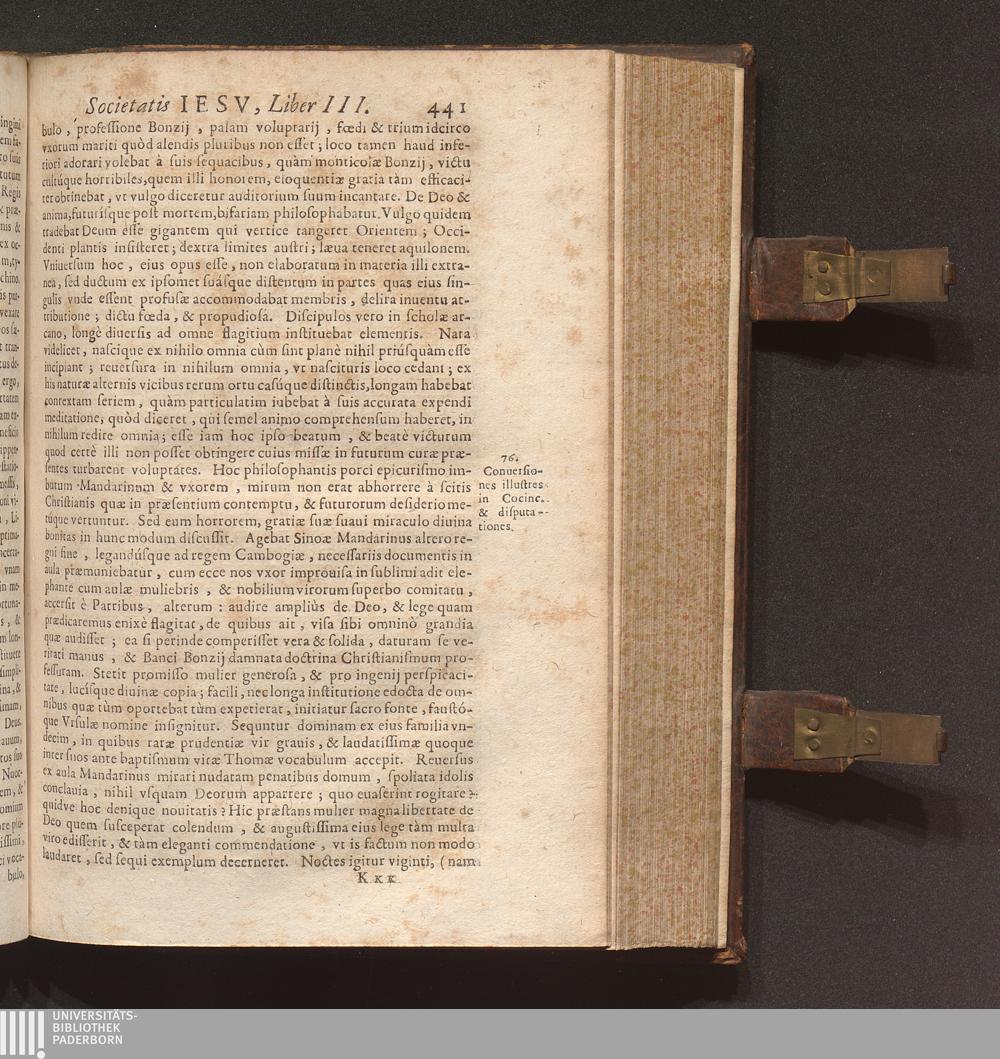 Societatis IESV, Liber III. 441
bulo, professione Bonzij, palam voluptarij, fœdi & trium idcirco
vxorum mariti quòd alendis pluribus non esset; loco tamen haud infe-
riori adorari volebat à suis sequacibus, quàm monticolæ Bonzij, victu
cultúque horribiles, quem illi honorem, eloquentiæ gratia tàm efficaci-
ter obtinebat, vt vulgo diceretur auditorium suum incantare. De Deo &
anima, futurisque post mortem, bifariam philosophabatur. Vulgo quidem
tradebat Deum esse gigantem qui vertice tangeret Orientem; Occi-
denti plantis insisteret; dextra limites austri; læua teneret aquilonem.
Vniuersum hoc, eius opus esse, non elaboratum in materia illi extra-
nea, sed ductum ex ipsomet suásque distentum in partes quas eius sin-
gulis vnde essent profusæ accommodabat membris, delira inuentu at-
tributione; dictu fœda, & propudiosa. Discipulos vero in scholæ ar-
cano, longè diuersis ad omne flagitium instituebat elementis. Nata
videlicet, nascique ex nihilo omnia cùm sint planè nihil priúsquàm esse
incipiant; reuersura in nihilum omnia, vt nascituris loco cedant; ex
his naturæ alternis vicibus rerum ortu casúque distinctis, longam habebat
contextam seriem, quàm particulatim iubebat à suis accurata expendi
meditatione, quòd diceret, qui semel animo comprehensum haberet, in
nihilum redire omnia; esse iam hoc ipso beatum, & beatè victurum
quod certè illi non posset obtingere cuius missæ in futurum curæ præ-
sentes turbarent voluptates. Hoc philosophantis porci epicurismo im-
butum Mandarinum & vxorem, mirum non erat abhorrere à scitis
Christianis quæ in præsentium contemptu, & futurorum desiderio me-
túque vertuntur. Sed eum horrorem, gratiæ suæ suaui miraculo diuina
bonitas in hunc modum discussit. Agebat Sinoæ Mandarinus altero re-
gni fine, legandúsque ad regem Cambogiæ, necessariis documentis in
aula præmuniebatur, cum ecce nos vxor improuisa in sublimi adit ele-
phante cum aulæ muliebris, & nobilium virorum superbo comitatu,
accersit è Patribus, alterum: audire ampliùs de Deo, & lege quam
prædicaremus enixè flagitat, de quibus ait, visa sibi omninò grandia
quæ audisset; ea si perinde comperisset vera & solida, daturam se ve-
ritati manus, & Banci Bonzij damnata doctrina Christianismum pro-
fessuram. Stetit promisso mulier generosa, & pro ingenij perspicaci-
tate, lucísque diuinæ copia; facili, nec longa institutione edocta de om-
nibus quæ tùm oportebat tùm expetierat, initiatur sacro fonte, faustó-
que Vrsulæ nomine insignitur. Sequntur dominam ex eius familia vn-
decim, in quibus raræ prudentiæ vir grauis, & laudatissimæ quoque
inter suos ante baptismum vitæ Thomæ vocabulum accepit. Reuersus
ex aula Mandarinus mirari nudatam penatibus domum, spoliata idolis
conclauia, nihil vsquam Deorum apparere; quo euaserint rogitare?
quidve hoc denique nouitatis? Hic præstans mulier magna libertate de
Deo quem susceperat colendum, & augustissima eius lege tàm multa
viro edisserit, & tàm eleganti commendatione, vt is factum non modo
laudaret, sed sequi exemplum decerneret. Noctes igitur viginti, (nam
Kkk
76.
Conuersio-
nes illustres
in Cocinc.
& disputa-
tiones.
UNIVERSITÄTS-
BIBLIOTHEK
PADERBORN